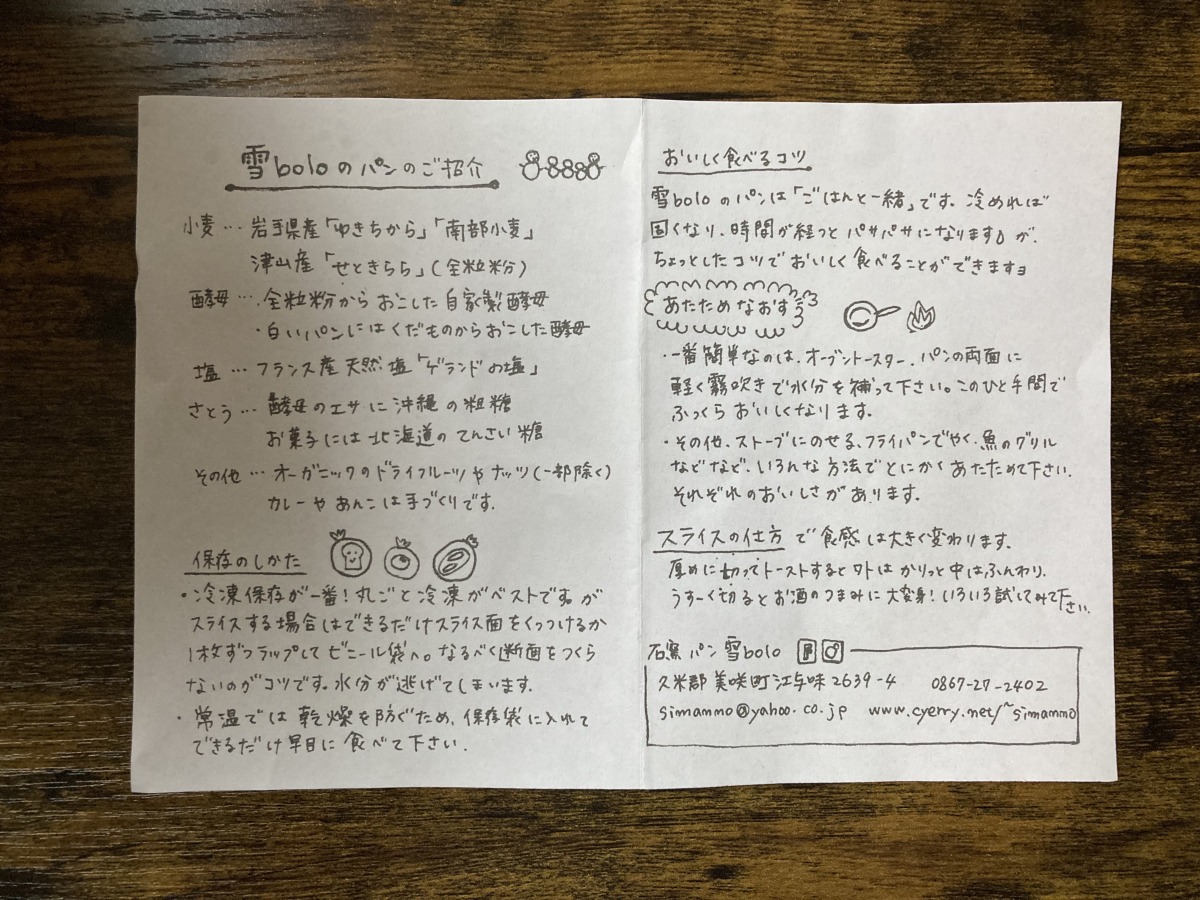 雪boloのパンのご紹介
小麦…岩手県産「ゆきちから」「南部小麦」
津山産「せときらら」(全粒粉)
酵母…・全粒粉からおこした自家製酵母
・白いパンにはくだものからおこした酵母
塩…フランス産天然塩「ゲランドの塩」
さとう…酵母のエサに沖縄の粗糖
お菓子には北海道のてんさい糖
その他…オーガニックのドライフルーツやナッツ(一部除く)
カレーやあんこは手づくりです。
保存のしかた
・冷凍保存が一番!丸ごと冷凍がベストですが
スライスする場合はできるだけスライス面をくっつけるか
1枚ずつラップしてビニール袋へ。なるべく断面をつくら
ないのがコツです。水分が逃げてしまいます。
・常温では乾燥を防ぐため、保存袋に入れて
できるだけ早目に食べて下さい.
おいしく食べるコツ
雪boloのパンは「ごはんと一緒」です。冷めれば
固くなり、時間が経つとパサパサになりますが、
ちょっとしたコツでおいしく食べることができますョ
あたためなおす
・一番簡単なのは、オーブントースター、パンの両面に
軽く霧吹きで水分を補って下さい。このひと手間で
ふっくらおいしくなります。
・その他、ストーブにのせる、フライパンでやく、魚のグリル
などなど、いろんな方法でとにかくあたためて下さい.
それぞれのおいしさがあります。
スライスの仕方で食感は大きく変わります。
厚めに切ってトーストするとソトはかりっと中はふんわり.
うすーく切るとお酒のつまみに大変身!いろいろ試してみて下さい.
石窯パン雪bolo
久米郡美咲町江与味2639-4 0867-27-2402
simammo@yahoo.co.jp www.cyerry.net/~simammo